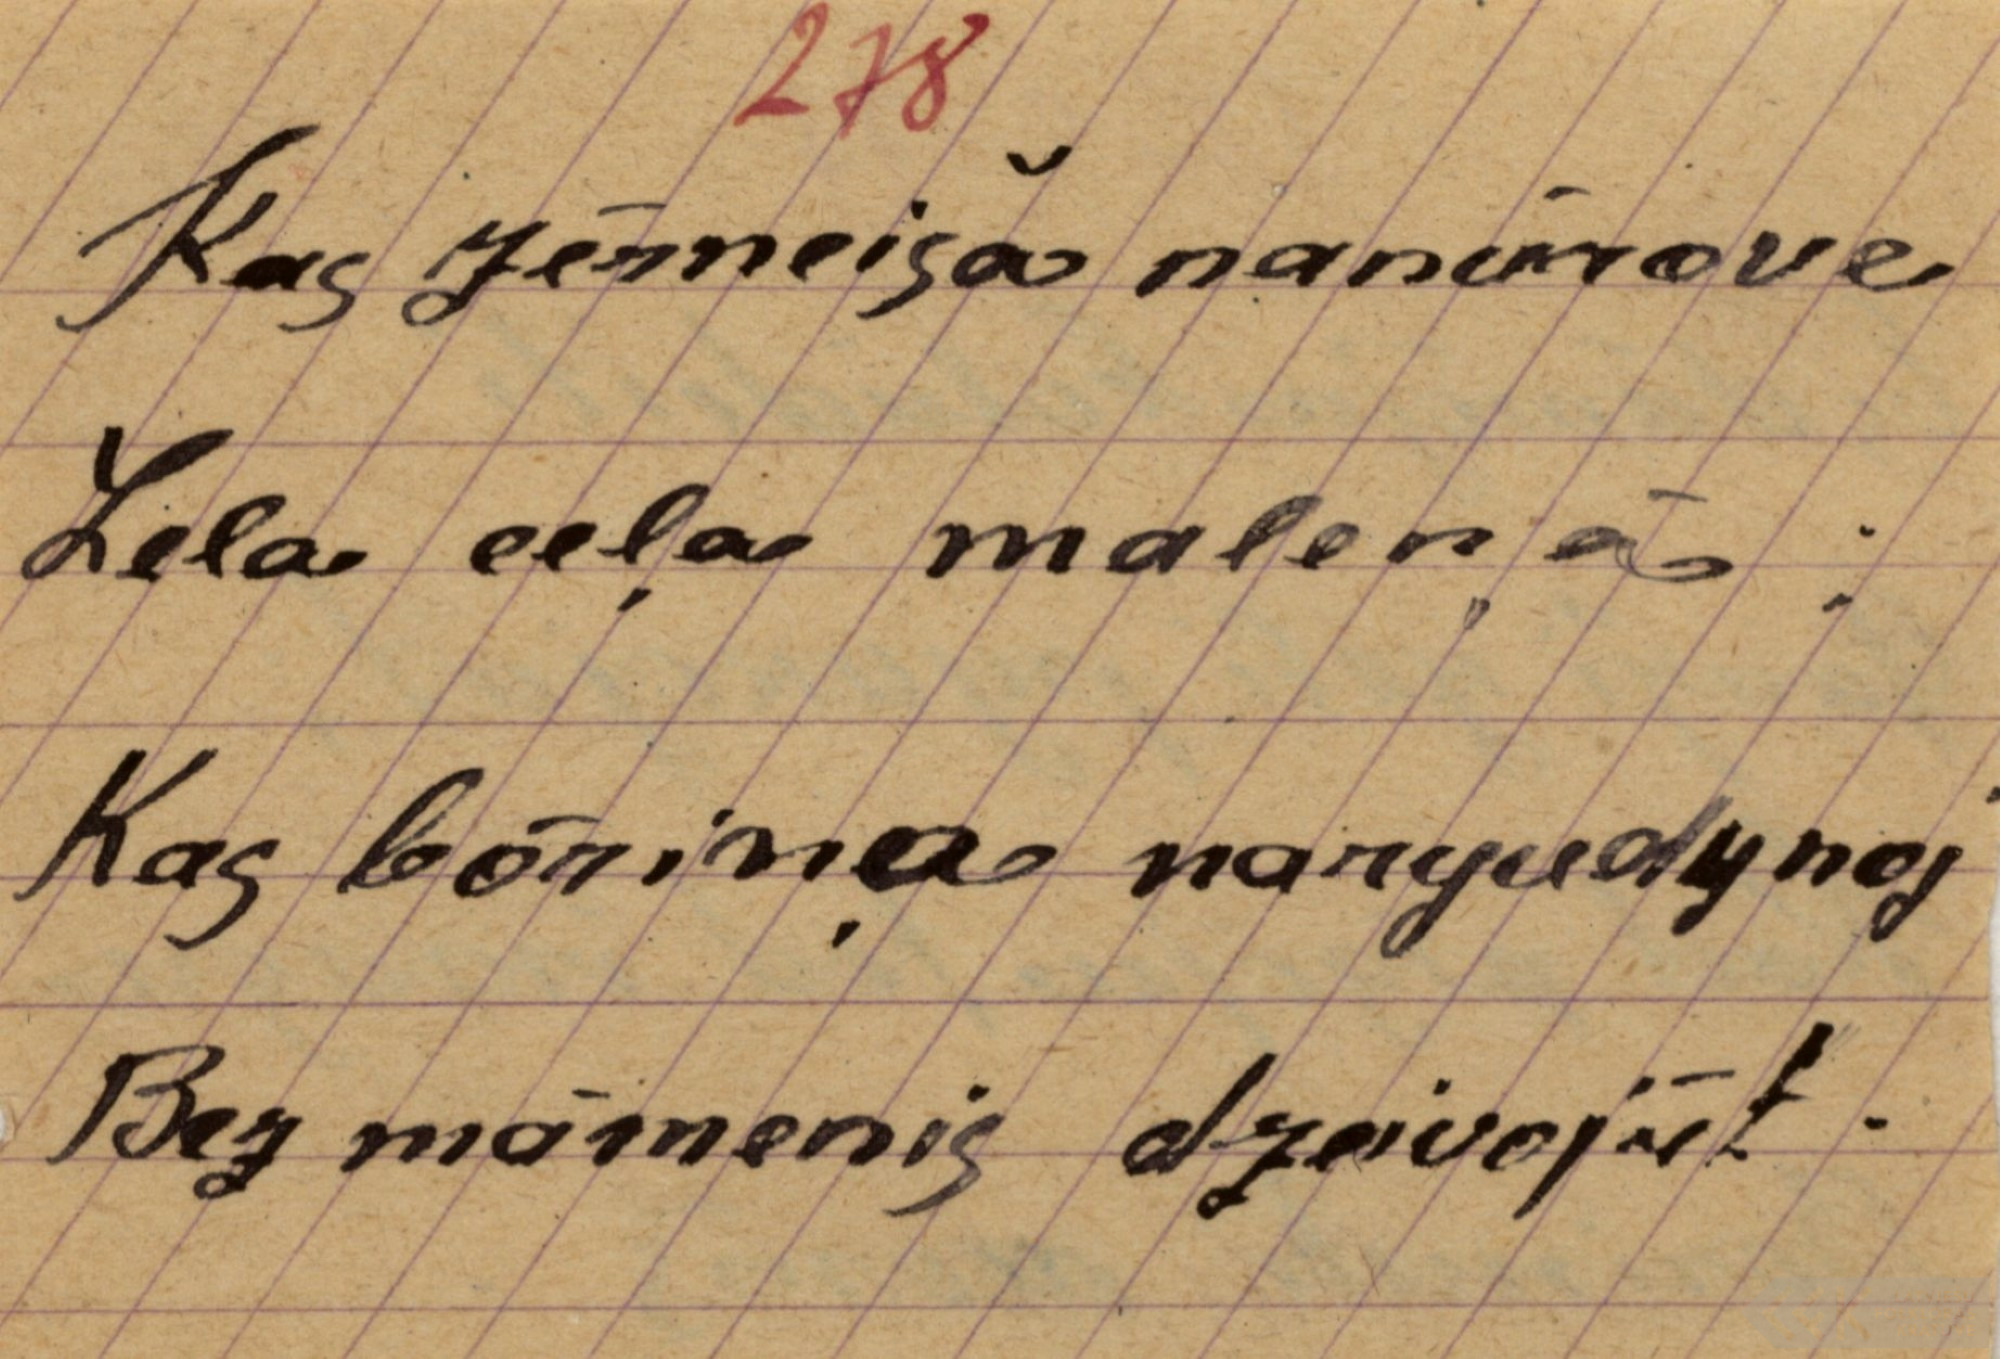 278
Kas zērneišǎ nanūrove
Lela ceļa maleņā;
Kas bōriņa naryudynoj
Bez māmenis dzeivojūt.